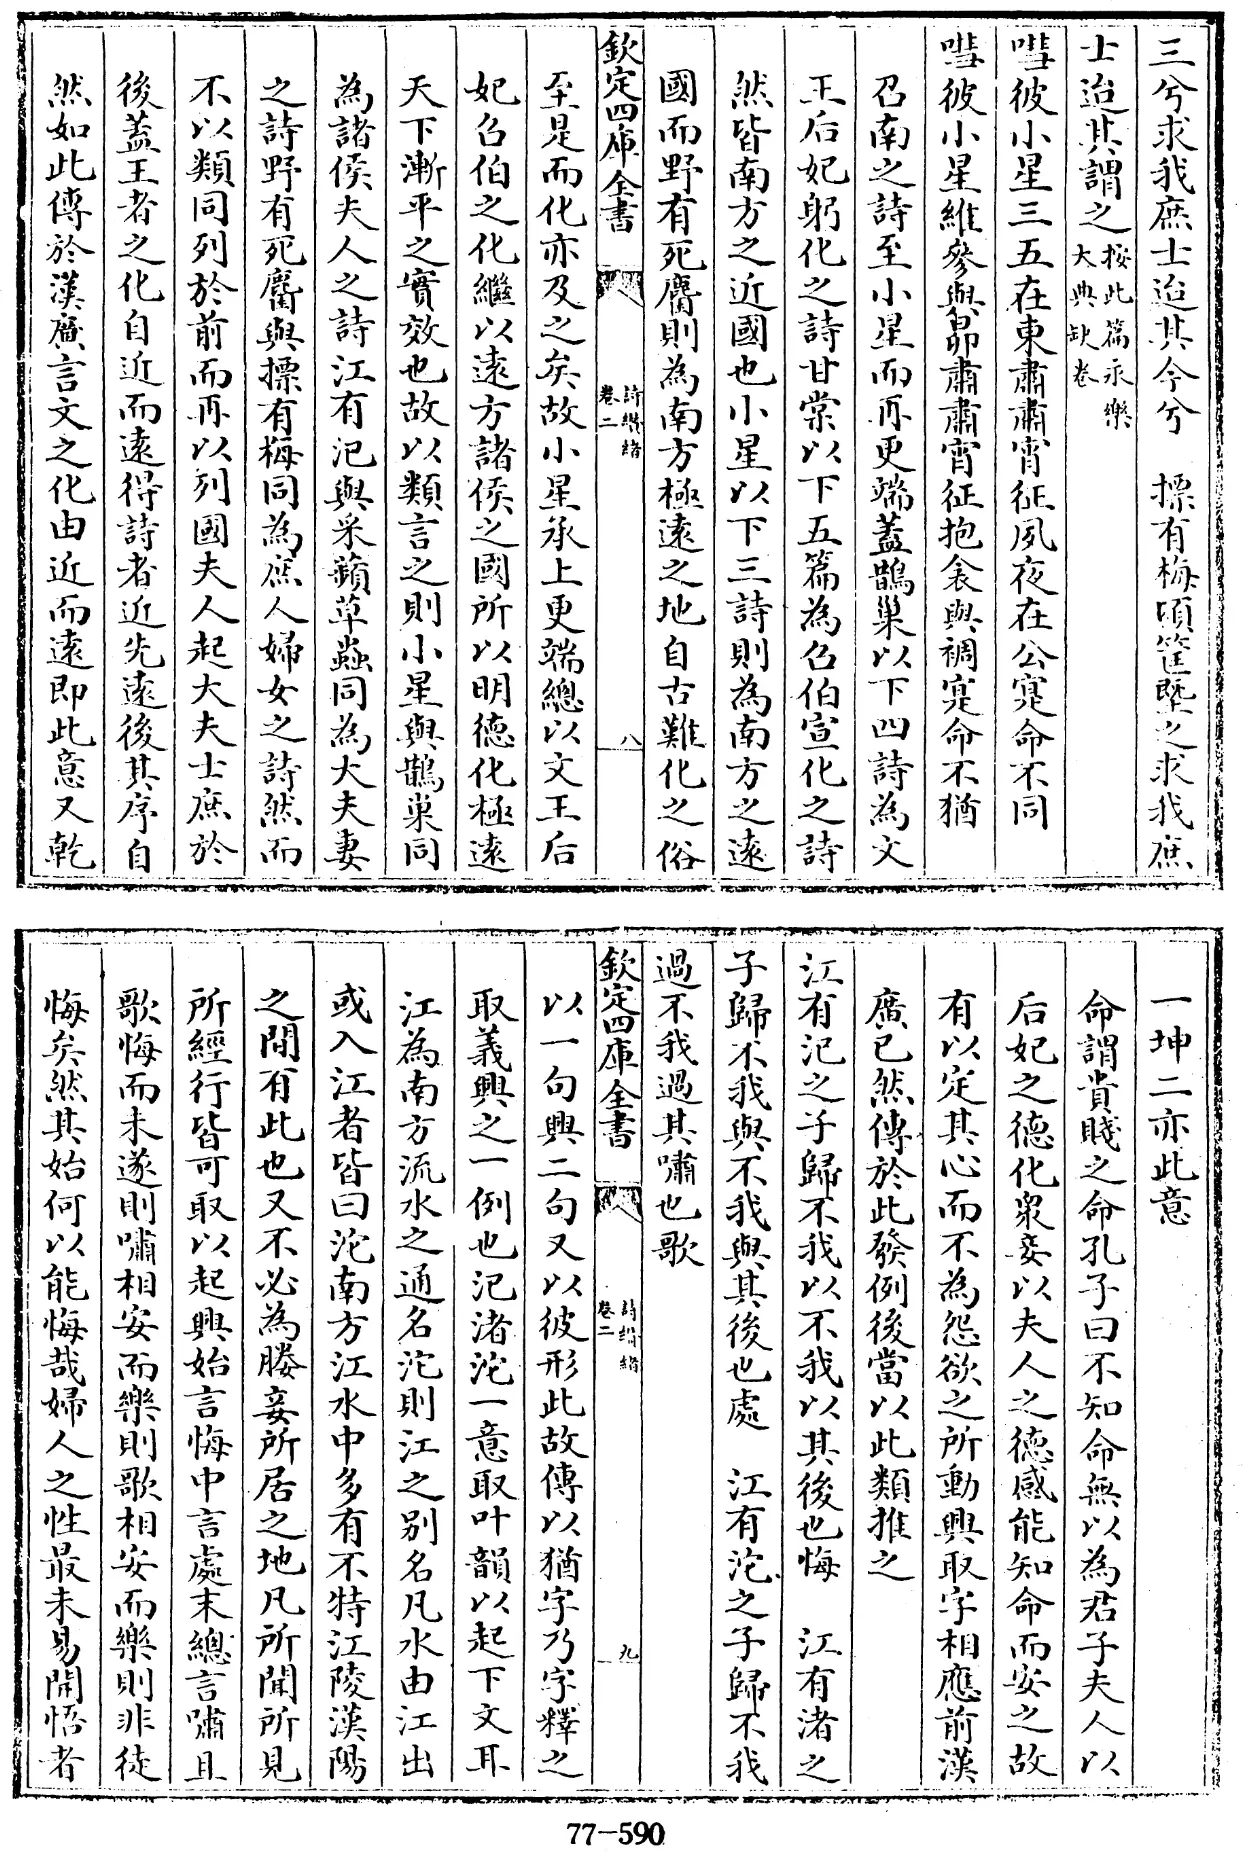 三兮求我庶士迨其今兮　摽有梅頃筐塈之求我庶
士迨其謂之按此篇永樂大典缺卷
嘒彼小星三五在東肅肅宵征夙夜在公寔命不同
嘒彼小星維參與昴肅肅宵征抱衾與裯寔命不猶
召南之詩至小星而再更端蓋鵲巢以下四詩為文
王后妃躬化之詩甘棠以下五篇為召伯宣化之詩
然皆南方之近國也小星以下三詩則為南方之遠
國而野有死麕則為南方極遠之地自古難化之俗
欽定四庫全書　詩纘緒卷二　八
至是而化亦及之矣故小星承上更端總以文王后
妃召伯之化繼以遠方諸侯之國所以明德化極遠
天下漸平之實效也故以類言之則小星與鵲巢同
為諸侯夫人之詩江有汜與采蘋草蟲同為大夫妻
之詩野有死麕與摽有梅同為庶人婦女之詩然而
不以類同列於前而再以列國夫人起大夫士庶於
後蓋王者之化自近而遠得詩者近先遠後其序自
然如此傳於漢廣言文之化由近而遠即此意又乾
一坤二亦此意
命謂貴賤之命孔子曰不知命無以為君子夫人以
后妃之德化衆妾以夫人之德感能知命而安之故
有以定其心而不為怨欲之所動興取字相應前漢
廣已然傳於此發例後當以此類推之
江有汜之子歸不我以不我以其後也悔　江有渚之
子歸不我與不我與其後也處　江有沱之子歸不我
過不我過其嘯也歌
欽定四庫全書　詩纘緒卷二　九
以一句興二句又以彼形此故傳以猶字乃字釋之
取義興之一例也汜渚沱一意取叶韻以起下文耳
江為南方流水之通名沱則江之别名凡水由江出
或入江者皆曰沱南方江水中多有不特江陵漢陽
之間有此也又不必為媵妾所居之地凡所聞所見
所經行皆可取以起興始言悔中言處末總言嘯且
歌悔而未遂則嘯相安而樂則歌相安而樂則非徒
悔矣然其始何以能悔哉婦人之性最未易開悟者
77-590